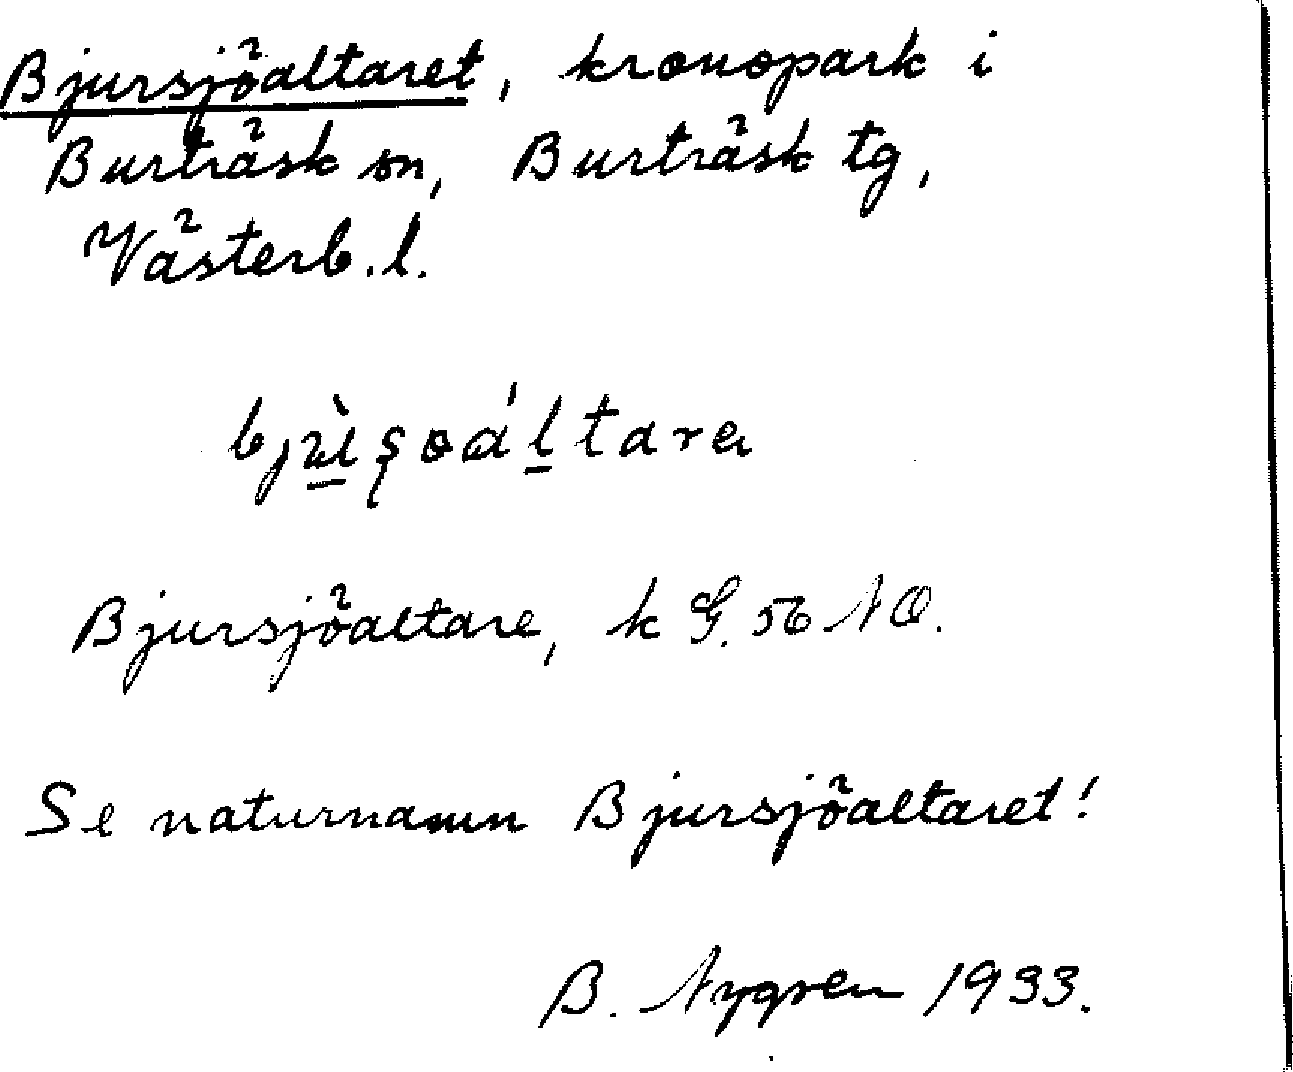 Bjursjöaltaret, kronopark i
Burträsk sn, Burträsk tg,
Västerb.l.
Bjursjöaltare, k G. 56 NO.
Se naturnamn Bjursjöaltaret!
B. Nygren 1933.